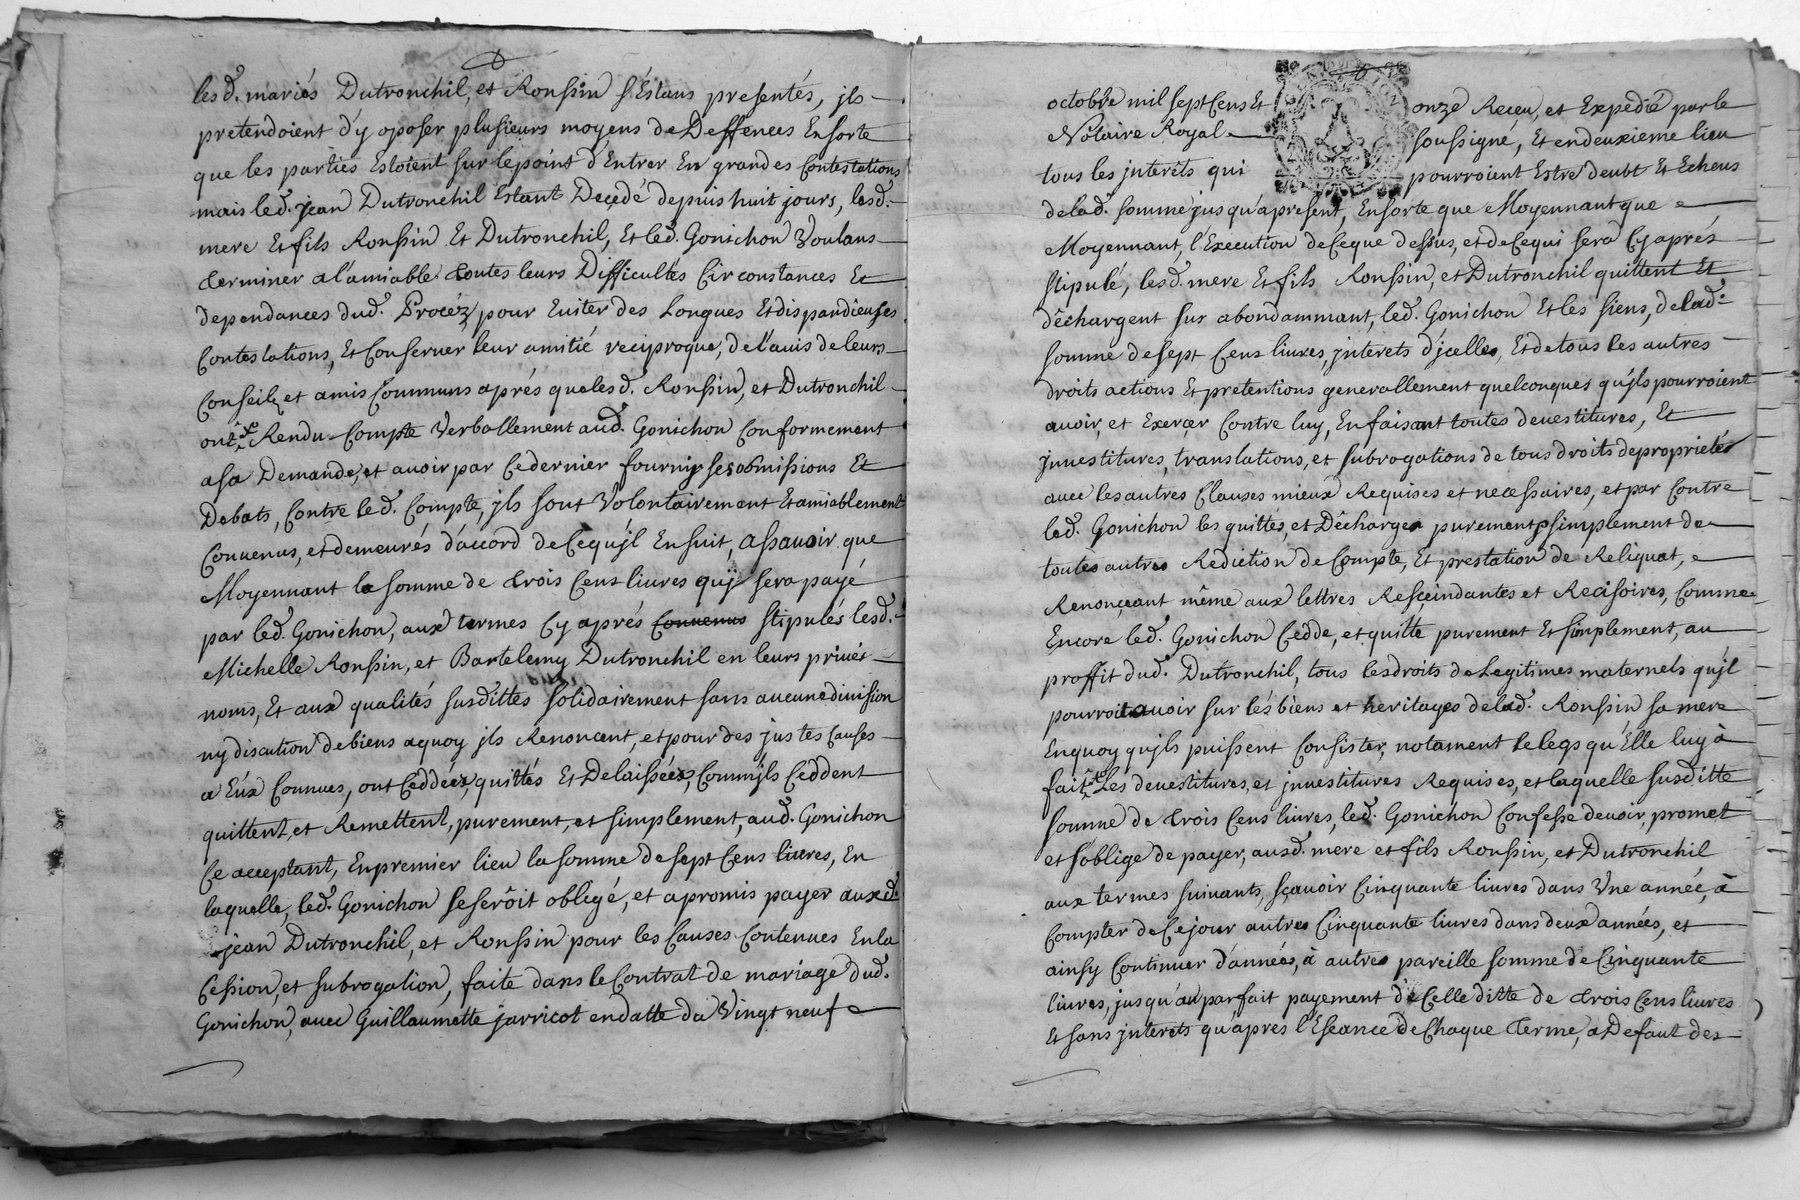 lesd. mariés Dutronchil, et Ronssin s'Estans presentés, jls
pretendoient d'y oposer plusieurs moyens de Deffences En sorte
que les parties Estoient sur le point d'Entrer En grandes Contestations
mais led. jean Dutronchil Estant Decedé depuis huit jours, lesd.
mere Et fils Ronssin Et Dutronchil, Et led. Gonichon Voulans
terminer a l'amiable toutes leurs Difficultés Circonstances Et
dependances dud. Procéz pour Euiter des Longues Et dispandieuses
Contestations, Et Conseruer leur amitié reciproque, de l'auis de leurs
Conseils et amis Communs aprés que lesd. Ronssin, et Dutronchil
ont Rendu Compte Verballement aud. Gonichon Conformement
a sa Demande, et auoir par Ce dernier fourny ses obmissions Et
Debats, Contre led. Compte, jls sont Volontairement Et amiablement
Conuenus, et demeurés d'accord de Ce qu'jl Ensuit, assauoir que
Moyennant la somme de trois Cens liures quy sera payé
par led. Gonichon, aux termes Cy aprés Conuenus stipulés lesd.
Michelle Ronssin, et Bartelemy Dutronchil en leurs priués
noms, Et aux qualités susdittes solidairement sans aucune diuision
ny discution de biens a quoy jls Renoncent, et pour des justes Causes
a Eux Connues, ont Ceddées, quittés Et Delaissées, Comm'jls Ceddent
quittent, et Remettent, purement, et simplement, aud. Gonichon
Ce acceptant, En premier lieu la somme de sept Cens liures, En
laquelle, led. Gonichon se serôit obligé, et a promis payer auxd.
jean Dutronchil, et Ronssin pour les Causes Contenues En la
Cession, et subrogation, faite dans le Contrat de mariage dud.
Gonichon, auec Guillaumette jarricot en datte du Vingt neuf
octobre mil sept Cens Et onze Receu, et Expedié par le
Notaire Royal soussigné, Et en deuxieme lieu
tous les jnterêts qui pourroient Estre deubt Et Echeus
de lad. somme jusqu'a present, En sorte que Moyennant que
Moyennant, l'Execution de Ce que dessus, et de Ce qui sera Cy aprés
stipulé, lesd. mere Et fils Ronssin, et Dutronchil quittent Et
dêchargent sur abondammant, led. Gonichon Et les siens, de lad.
somme de sept Cens liures, jnterets d'jcelles, Et de tous les autres
droits actions Et pretentions generallement quelconques qu'jls pourroient
auoir, et Exerçer Contre luy, En faisant toutes deuestitures, Et
jnuestitures, translations, et subrogations de tous droits de proprietés
auec les autres Clauses mieux Requises et necessaires, et par Contre
led. Gonichon les quittes, et Dêcharges purement simplement de
toutes autres Rediction de Compte, Et prestation de Reliquat,
Renonçeant même aux lettres Resçeindantes et Recisoires, Comme
Encore led. Gonichon Cedde, et quitte purement Et simplement, au
proffit dud. Dutronchil, tous les droits de Legitimes maternels qu'jl
pourroit auoir sur lés biens et heritages de lad. Ronssin sa mere
En quoy qu'jls puissent Consister, notament le legs qu'Elle luy à
fait Les deuestitures, et jnuestitures Requises, et laquelle susditte
somme de trois Cens liures, led. Gonichon Confesse deuoir, promet
et s'oblige de payer, ausd. mere et fils Ronssin, et Dutronchil
aux termes suiuants, sçauoir Cinquante liures dans Vne année, à
Compter de Ce jour autres Cinquante liures dans deux années, et
ainsy Continuer d'années, à autres pareille somme de Cinquante
liures, jusqu'au parfait payement d'jCelle ditte de trois Cens liures
Et sans jnterets qu'apres l'Eseance de Chaque terme, a Defaut des